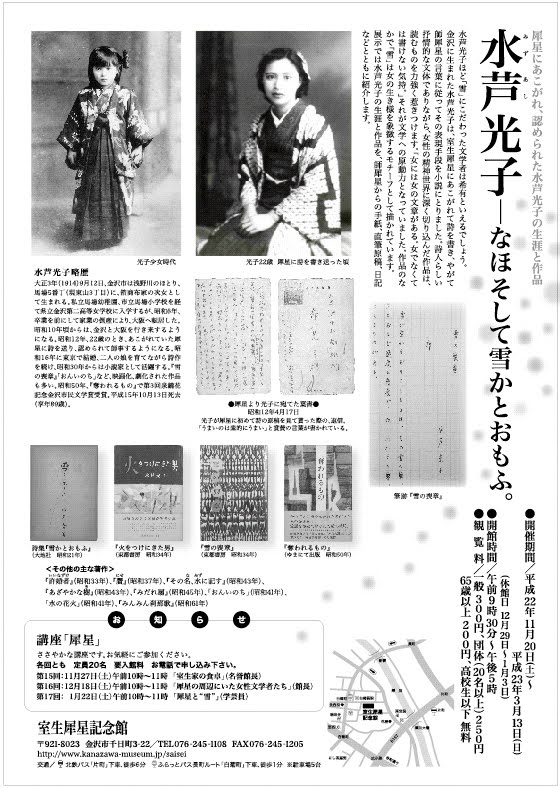 犀星にあこがれ、認められた水芦光子の生涯と作品
水芦光子―なほそして雪かとおもふ。
みずあし
水芦光子ほど「雪」にこだわった文学者は稀有といえるでしょう。
金沢に生まれた水芦光子は、室生犀星にあこがれて詩を書き、やがて
師犀星の言葉に従ってその表現手段を小説にとりました。詩人らしい
抒情的な文体でありながら、女性の精神世界に深く切り込んだ作品は、
読むものを力強く惹きつけます。「女には女の文章がある。女でなくて
は書けない気持。」それが文学への原動力となっていました。作品のな
かで「雪」は女の生き様を象徴するモチーフとして描かれています。
展示では水芦光子の生涯と作品を、師犀星からの手紙、直筆原稿、日記
などとともに紹介します。
光子少女時代
光子22歳 犀星に詩を書き送った頃
水芦光子略歴
大正3年(1914)9月12日、金沢市は浅野川のほとり、
馬場5番丁(現東山3丁目)に、箔商布家の次女とし
て生まれる。私立馬場幼稚園、市立馬場小学校を経
て県立金沢第二高等女学校に入学するが、昭和6年、
卒業を前にして家業の倒産により、大阪へ転居した。
昭和10年頃からは、金沢と大阪を行き来するように
なる。昭和12年、22歳のとき、あこがれていた犀
星に詩を送り、認められて師事するようになる。昭
和16年に東京で結婚、二人の娘を育てながら詩作
を続け、昭和30年からは小説家として活躍する。『雪
の喪章』『おんいのち』など、映画化、劇化された作品
も多い。昭和50年、『奪われるもの』で第3回泉鏡花
記念金沢市民文学賞受賞。平成15年10月13日死去
(享年89歳)。
●犀星より光子に宛てた葉書●
昭和12年4月17日
光子が犀星に初めて詩の原稿を見て貰った際の、返信。
「うまいのは素的にうまい」と賞賛の言葉が書かれている。
筆跡『雪の喪章』
詩集『雪かとおもふ』
(大地社 昭和21年)
『火をつけにきた男』
(東都書房 昭和34年)
『雪の喪章』
(東都書房 昭和34年)
『奪われるもの』
(ゆまにて出版 昭和50年)
<その他の主な著作>
『許婚者』(昭和33年)、『贋』(昭和37年)、『その名、水に記す』(昭和43年)、
『あざやかな樹』(昭和43年)、『みだれ扇』(昭和45年)、『おんいのち』(昭和41年)、
『水の花火』(昭和41年)、『みんみん刹那歌』(昭和61年)
●開催期間/平成22年11月20日(土)〜
平成23年3月13日(日)
●開館時間/午前9時30分〜午後5時
(休館日 12月29日〜1月3日)
●観覧料/一般300円、団体(20名以上)250円
65歳以上200円、高校生以下無料
おしらせ
講座「犀星」
ささやかな講座です。お気軽にご参加ください。
各回とも 定員20名 要入館料 お電話で申し込み下さい。
第15回:11月27日(土)午前10時〜11時 「室生家の食卓」(名誉館長)
第16回:12月18日(土)午前10時〜11時 「犀星の周辺にいた女性文学者たち」(館長)
第17回: 1月22日(土)午前10時〜11時 「犀星と“雪”」(学芸員)
室生犀星記念館
〒921-8023 金沢市千日町3-22/TEL076-245-1108 FAX076-245-1205
http://www.kanazawa-museum.jp/saisei
交通/北鉄バス「片町」下車、徒歩6分 ふらっとバス長町ルート「白菊町」下車、徒歩1分 ※駐車場5台
室生犀星
記念館